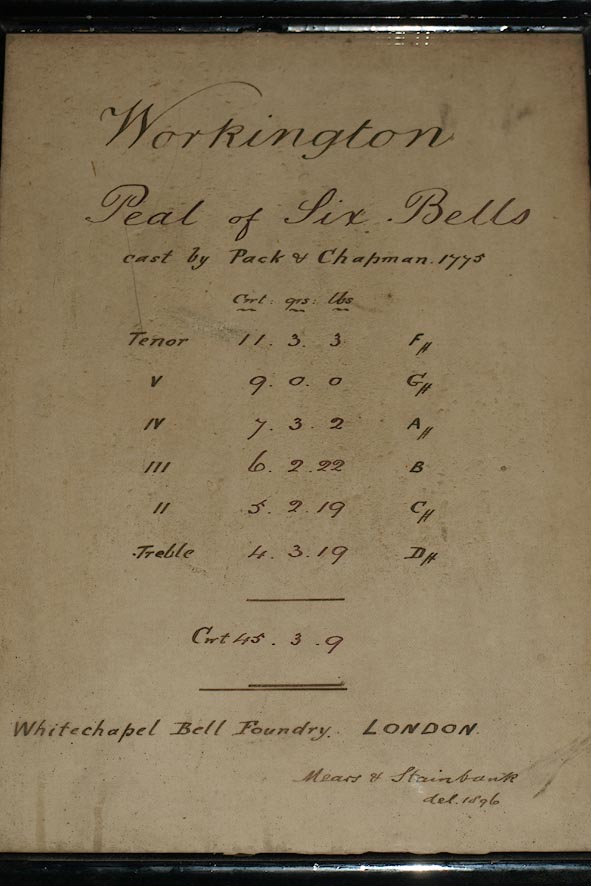 Workington
Peal of Six Bells
cast by Pack & Chapman. 1775
Cwt: qrs: lbs
Tenor 11. 3. 3 F#
V 9. 0. 0 G#
IV 7. 3. 2 A#
III 6. 2. 22 B
II 5. 2. 19 C#
Treble 4. 3. 19 D#
Cwt 45. 3. 9
Whitechapel Bell Foundry. LONDON.
Mears & Stainbank
del. 1896